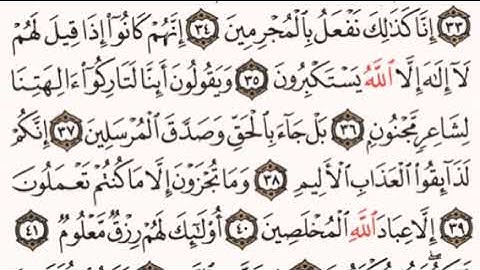 ٣٣ إِنَّا كَذَٰلِكَ نَفْعَلُ بِٱلْمُجْرِمِينَ ٣٤ إِنَّهُمْ كَانُوٓا۟ إِذَا قِيلَ لَهُمْ
لَآ إِلَٰهَ إِلَّا ٱللَّهُ يَسْتَكْبِرُونَ ٣٥ وَيَقُولُونَ أَئِنَّا لَتَارِكُوٓا۟ ءَالِهَتِنَا
لِشَاعِرٍ مَّجْنُونٍۭ ٣٦ بَلْ جَآءَ بِٱلْحَقِّ وَصَدَّقَ ٱلْمُرْسَلِينَ ٣٧ إِنَّكُمْ
لَذَآئِقُوا۟ ٱلْعَذَابِ ٱلْأَلِيمِ ٣٨ وَمَا تُجْزَوْنَ إِلَّا مَا كُنتُمْ تَعْمَلُونَ
٣٩ إِلَّا عِبَادَ ٱللَّهِ ٱلْمُخْلَصِينَ ٤٠ أُو۟لَٰٓئِكَ لَهُمْ رِزْقٌ مَّعْلُومٌ ٤١